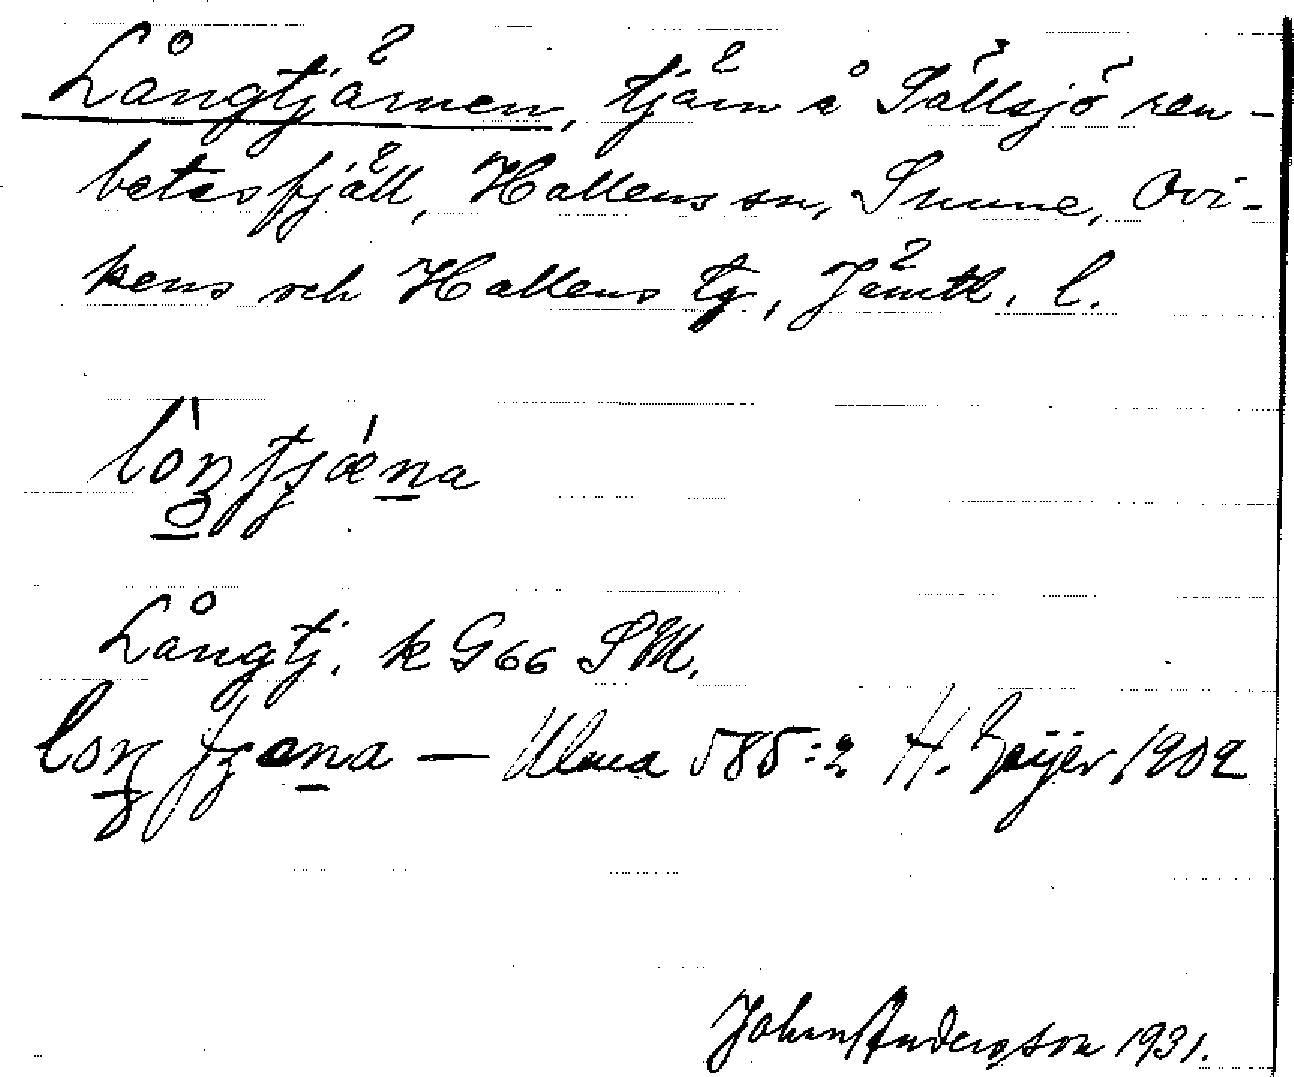 Långtjärnen, tjärn å Sällsjö ren-
betesfjäll, Hallens sn, Sunne, Ovi-
kens och Hallens tg, Jämtl. l.
Långtj. k G66 SM.
— Ulma 585:2 H. Geijer 1902
John Andersson 1931.